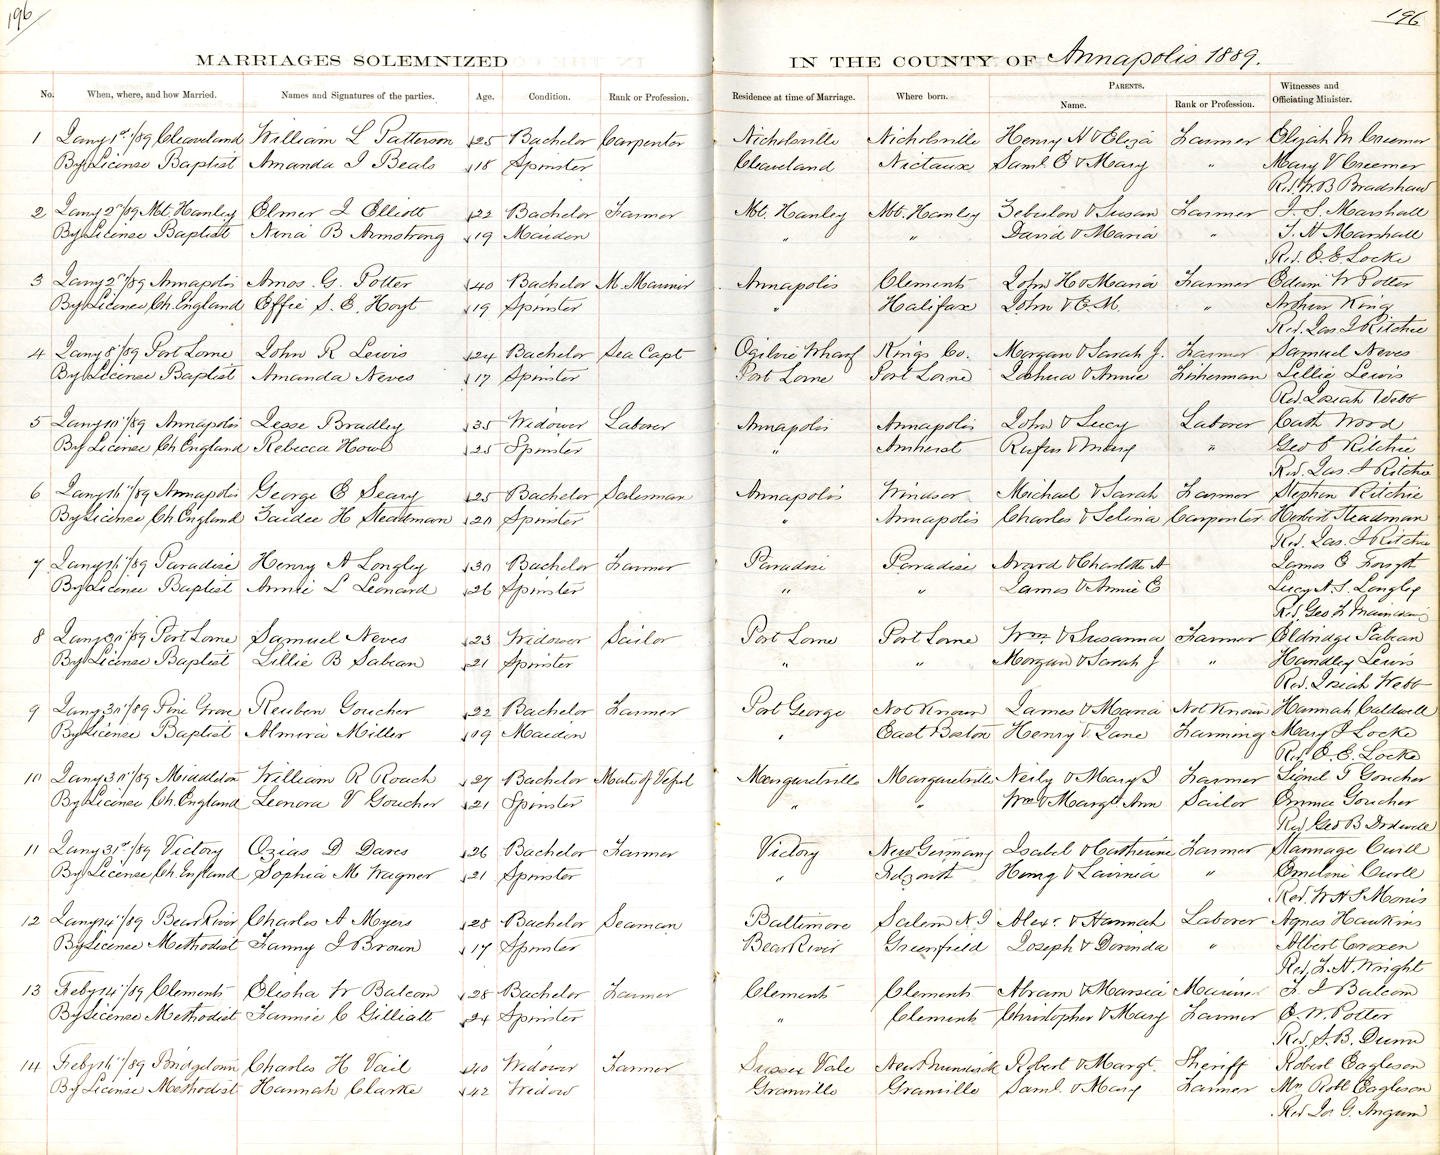 196
196
MARRIAGES SOLEMNIZED IN THE COUNTY OF Annapolis 1889.
No. When, where, and how Married. Names and Signatures of the parties. Age. Condition. Rank or Profession. Residence at time of Marriage. Where born. PARENTS. Name. Rank or Profession. Witnesses and Officiating Minister.
1 Jany 1st/89 Cleaveland William L Patterson 25 Bachelor Carpenter Nicholsville Nicholsville Henry H & Eliza Farmer Elijah M Creemer
By License Baptist Amanda J Beals 18 Spinster Cleaveland Nictaux Saml. C & Mary " Mary V Creemer
Rev. W B Bradshaw
2 Jany 2nd/89 Mt. Hanley Elmer J Elliott 22 Bachelor Farmer Mt. Hanley Mt. Hanley Zebulon & Susan Farmer J. S. Marshall
By License Baptist Nina B Armstrong 19 Maiden " " David & Maria " F. H Marshall
Rev. E. E. Locke
3 Jany 2nd/89 Annapolis Amos G. Potter 40 Bachelor M. Mariner Annapolis Clements John H & Maria Farmer Edwin W Potter
By License Ch. England Effie S. E. Hoyt 19 Spinster " Halifax John & E. M. " Arthur King
Rev. Jas J Ritchie
4 Jany 8th/89 Port Lorne John R Lewis 24 Bachelor Sea Capt Ogilvie Wharf Kings Co. Morgan & Sarah J. Farmer Samuel Neves
By License Baptist Amanda Neves 17 Spinster Port Lorne Port Lorne Joshua & Annie Fisherman Lillie Lewis
Rev. Josiah Webb
5 Jany 10th/89 Annapolis Jesse Bradley 35 Widower Laborer Annapolis Annapolis John & Lucy Laborer Cath Wood
By License Ch England Rebecca Howe 25 Spinster " Amherst Rufus & Mary " Geo Ritchie
Rev. Jas. J Ritchie
6 Jany 16th/89 Annapolis George E Seary 25 Bachelor Salesman Annapolis Windsor Michael & Sarah Farmer Stephen Ritchie
By License Ch England Zaidee H Steadman 20 Spinster " Annapolis Charles & Selina Carpenter Herbert Steadman
Rev. Jas. J Ritchie
7 Jany 16th/89 Paradise Henry A Longley 30 Bachelor Farmer Paradise Paradise Avard & Charlotte A James E Forsyth
By License Baptist Annie L Leonard 26 Spinster " " James & Annie E Lucy A. S. Longley
Rev. Geo F
8 Jany 30th/89 Port Lorne Samuel Neves 23 Widower Sailor Port Lorne Port Lorne Wm & Susanna Farmer Eldridge Sabean
By License Baptist Lillie B Sabean 21 Spinster " " Morgan & Sarah J " Handley Lewis
Rev. Josiah Webb
9 Jany 30th/89 Pine Grove Reuben Goucher 22 Bachelor Farmer Port George Not Known James & Maria Not Known Hannah Caldwell
By License Baptist Almira Miller 19 Maiden " East Boston Henry & Jane Farming Mary J Locke
Rev. E. E. Locke
10 Jany 30th/89 Middleton William R Roach 27 Bachelor Mate of Vessel Margaretville Margaretville Neily & Mary J Farmer Lionel T Goucher
By License Ch. England Leonora V Goucher 21 Spinster " " Wm & Margt Ann Sailor Emma Goucher
Rev Geo B Dodwell
11 Jany 31st/89 Victory Ozias D Dares 26 Bachelor Farmer Victory New Germany Isabel & Catherine Farmer Stannage Curll
By License Ch. England Sophia M Wagner 21 Spinster " Henry & Lavinia " Emeline Curll
Rev. W H S Morris
12 Jany 14th/89 Bear River Charles A Myers 28 Bachelor Seaman Baltimore Salem N. J Alexr. & Hannah Laborer Agnes Hawkins
By License Methodist Fanny J Brown 17 Spinster Bear River Greenfield Joseph & Dorinda " Albert Croxen
Rev. F. H. Wright
13 Feby 14th/89 Clements Elisha W Balcom 28 Bachelor Farmer Clements Clements Abram & Marsia Mariner F. J Balcom
By License Methodist Fannie C Gilliatt 24 Spinster " Clements Christopher & Mary Farmer E. W. Potter
Rev. S. B. Dunn
14 Feby 16th/89 Bridgetown Charles H Vail 40 Widower Farmer Sussex Vale New Brunswick Robert & Margt. Sheriff Robert Eagleson
By License Methodist Hannah Clarke 42 Widow Granville Granville Saml. & Mary Farmer Mrs Robt Eagleson
Rev Jos G. Angwin